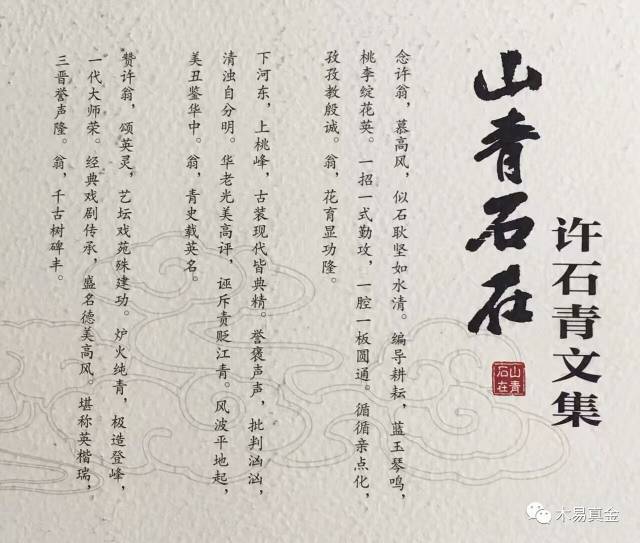 许石青文集
山青石在
山青
石在
念许翁，慕高风，似石耿坚如水清。编导耕耘，蓝玉琴鸣，
桃李绽花英。一招一式勤攻，一腔一板圆通。循循亲点化，
孜孜教殷诚。翁，花育显功隆。
下河东，上桃峰，古装现代皆典精。誉褒声声，批判汹汹，
清浊自分明。华老光美高评，诬斥责贬江青。风波平地起，
美丑鉴华中。翁，青史载英名。
赞许翁，颂英灵，艺坛戏苑殊建功。炉火纯青，极造登峰，
一代大师荣。经典戏剧传承，盛名德美高风。堪称英楷瑞，
三晋誉声隆。翁，千古树碑丰。
木易真金